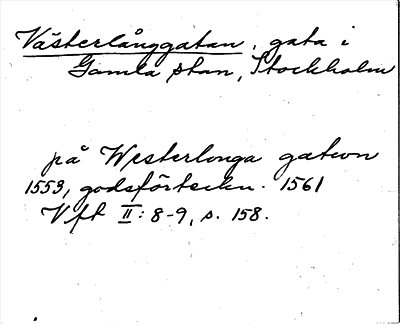 Västerlånggatan, gata i
Gamla stan, Stockholm
på Westerlonga gatwn
1553, godsförteckn. 1561
Vft II: 8-9, s. 158.